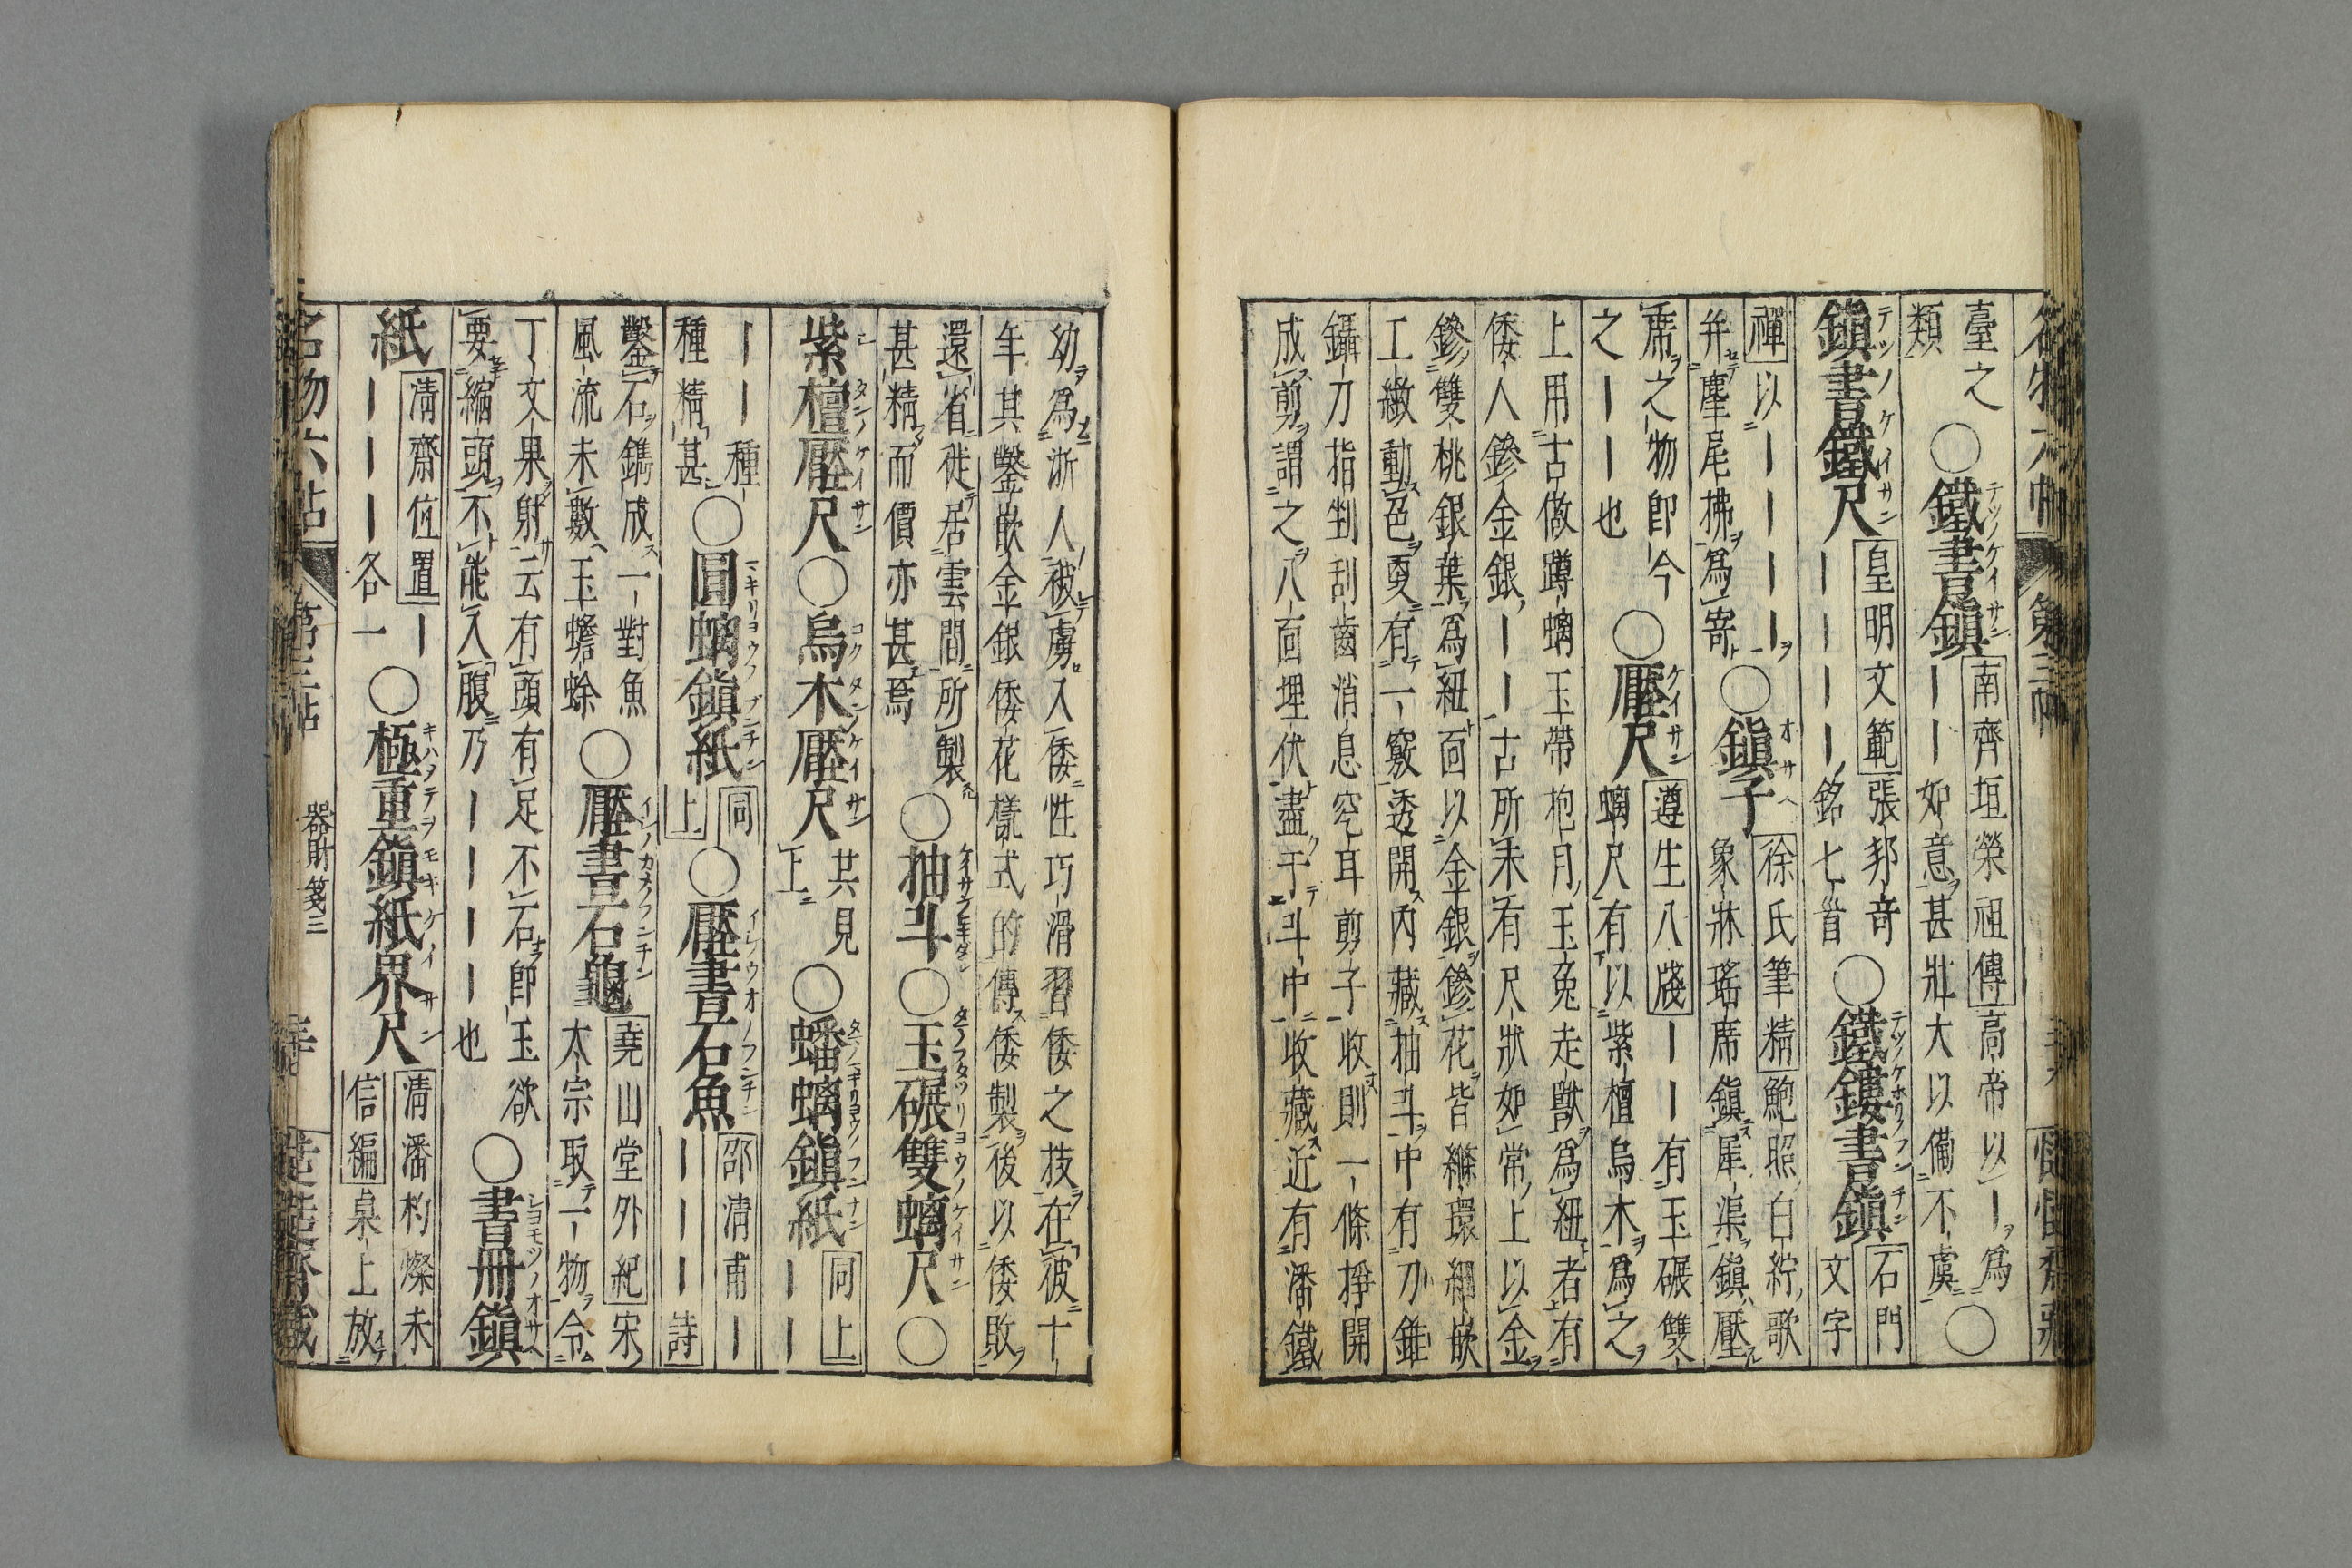 臺之
類
○鐵書鎮
南齊垣榮祖傳高帝以|爲
||如意甚壯大以備不虞
○
鎮書鐵尺
皇明文範張邦奇
|||||銘七首
○鐵鏤書鎮
石門
文字
禪以|||||
弁麈尾拂爲寄
○鎮子
徐氏筆精鮑照白紵歌
象牀瑤席鎮犀渠鎮壓
席之物即今
之|||也
○壓尺
遵生八牋||有玉碾雙
螭尺有以紫檀烏木爲之
上用古做蹲螭玉帶枹月玉兔走獸爲紐者有
倭人鏒金銀||古所未有尺狀如常上以金
鏒雙桃銀葉爲紐面以金銀鏒花皆縧環細嵌
工緻動色更有一竅透開內藏抽斗中有刀錐
鑷刀指剉刮齒消息空耳剪子收則一條掙開
成剪謂之八面埋伏盡于斗中收藏近有潘鐵
幼爲浙人被虜入倭性巧滑習倭之技在彼十
年其鑿嵌金銀倭花樣式的傳倭製後以倭敗
還省徙居雲間所製
甚精而價亦甚焉
○抽斗○玉碾雙螭尺○
紫檀壓尺○烏木壓尺
共見
上
○蟠螭鎮紙
同上
||
||種
種精甚
○圓螭鎮紙
同
上
○壓書石魚
邵清甫|
||||詩
鑿石鐫成一對魚
風流未數玉蟾蜍
○壓書石龜
堯山堂外紀宋
太宗取一物令
丁文果射云有頭有足不石即玉欲
要縮頭不能入腹乃||||也
○書冊鎮
紙
清齋位置|
|||各一
○極重鎮紙界尺
清潘杓燦未
信編臬上放
名物六帖 第三帖 器財箋三